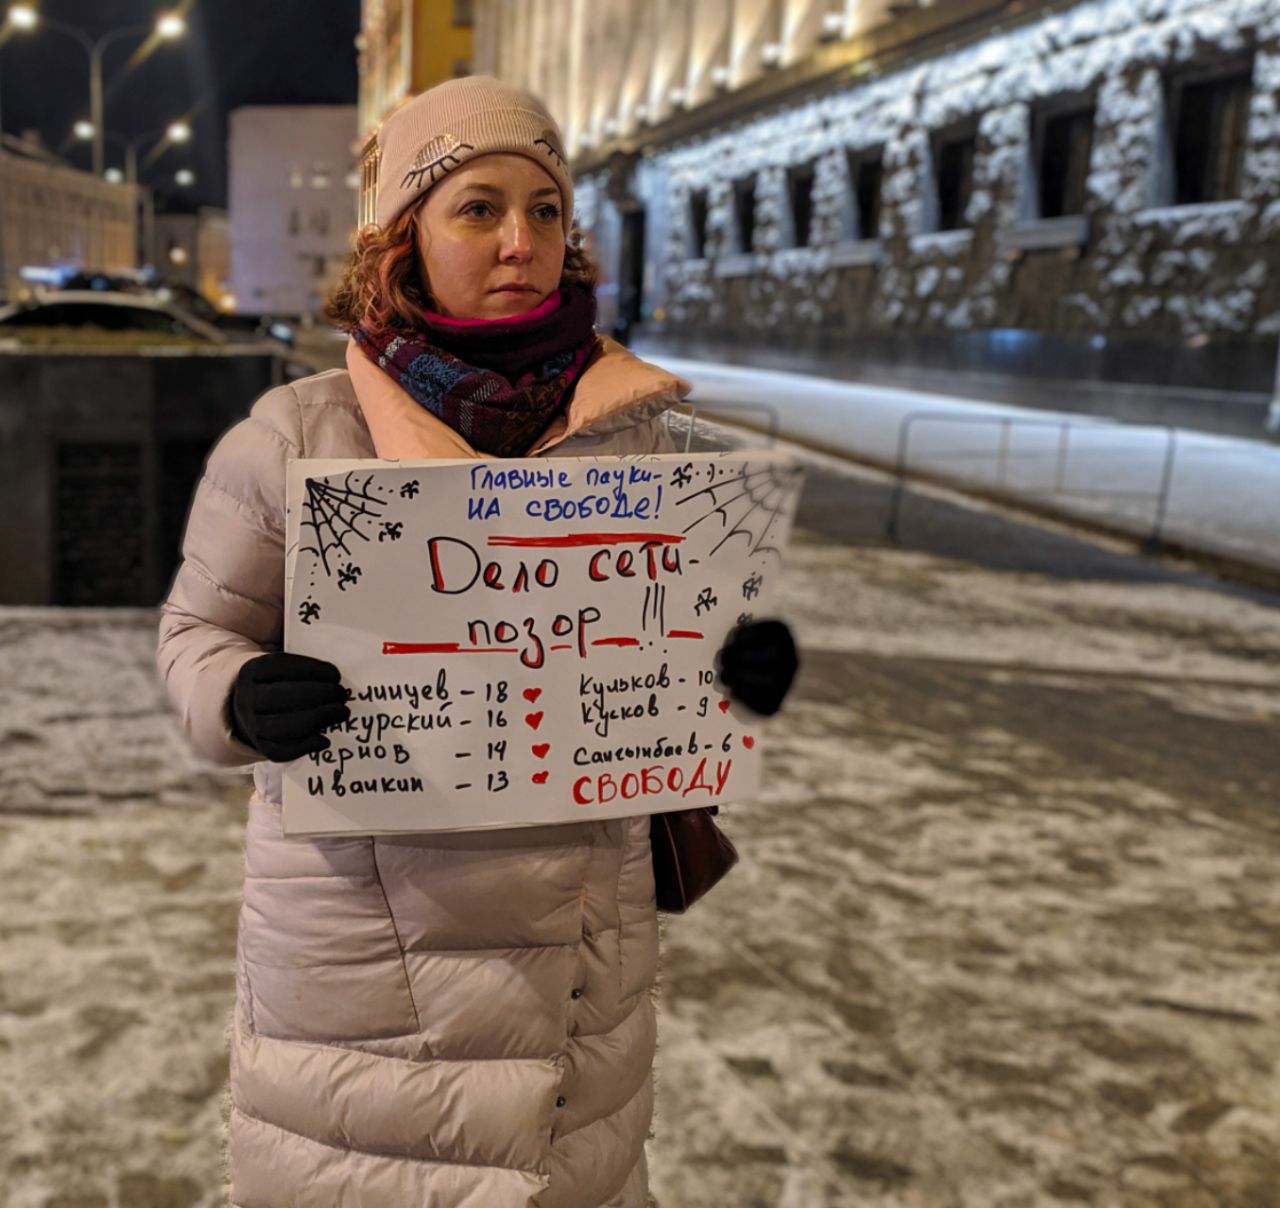 Главные пауки-
НА СВОБОДЕ!
Дело сети-
позор !!!
- 18
- 16
Чернов - 14
Иванкин - 13
Кульков - 10
Кусков - 9
Сангынбаев - 6
СВОБОДУ